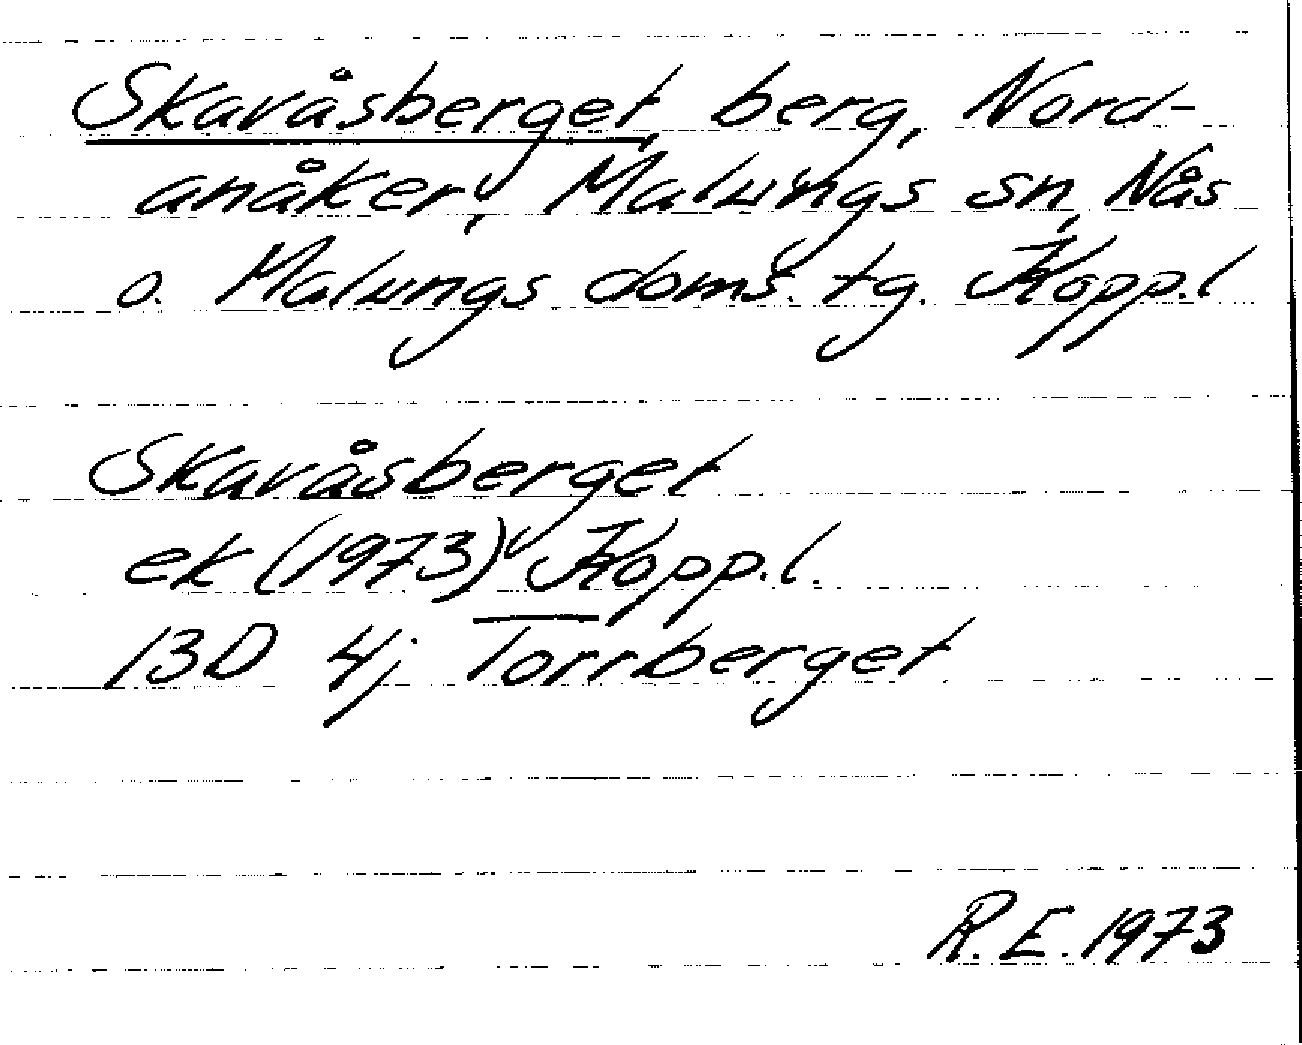 Skavåsberget, berg, Nord-
anåker, Malungs sn, Nås
o. Malungs doms. tg. Kopp.l
Skavåsberget
ek (1973) Kopp.l.
13D 4j Torrberget
R.E. 1973